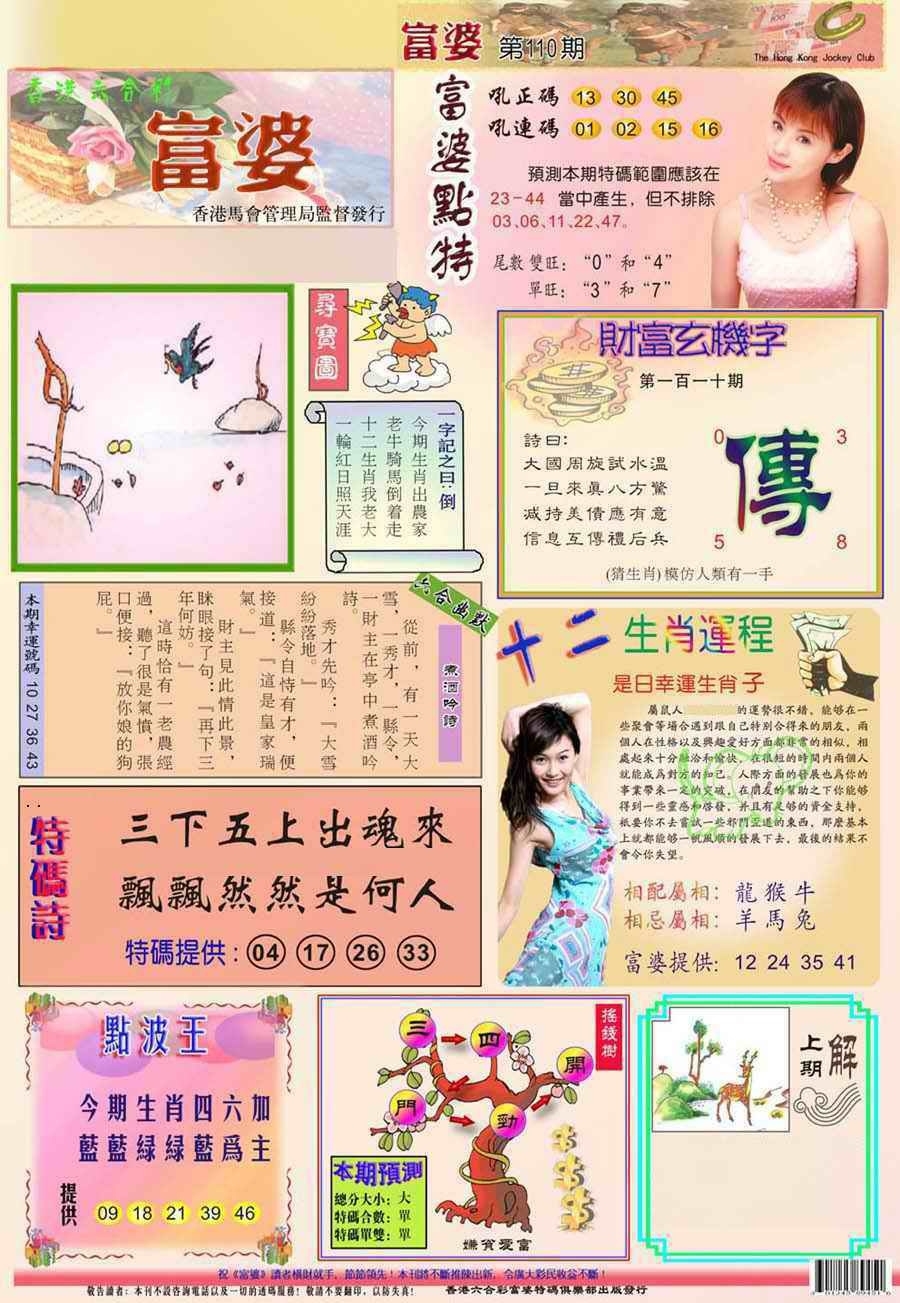 富婆 第110期
The Hong Kong Jockey Club
香港六合彩
富婆
香港馬會管理局監督發行
富婆點特
吼正碼 13 30 45
吼連碼 01 02 15 16
預測本期特碼範圍應該在
23-44 當中產生，但不排除
03、06、11、22、47。
尾數雙旺：“0”和“4”
單旺：“3”和“7”
尋寶圖
一字記之曰：倒
今期生肖出農家
老牛騎馬倒着走
十二生肖我老大
一輪紅日照天涯
財富玄機字
第一百一十期
詩曰：
大國周旋試水溫
一旦來真八方驚
減持美債應有意
信息互傳禮后兵
0 3
傳
5 8
(猜生肖)模仿人類有一手
六合幽默
煮酒吟詩
從前，有一天大
雪，一秀才，一縣令，
一財主在亭中煮酒吟
詩。
秀才先吟：『大雪
紛紛落地。』
縣令自恃有才，便
接道：『這是皇家瑞
氣。』
財主見此情此景，
眯眼接了句：『再下三
年何妨。』
這時恰有一老農經
過，聽了很是氣憤，張
口便接：『放你娘的狗
屁。』
本期幸運號碼 10 27 36 43
十二生肖運程
是日幸運生肖子
屬鼠人的運勢很不錯，能够在一
些聚會等場合遇到跟自己特別合得來的朋友，兩
個人在性格以及興趣愛好方面都非常的相似，相
處起來十分融洽和愉快，在很短的時間内兩個人
就能成爲對方的知己，人際方面的發展也爲你的
事業帶來一定的突破，在朋友的幫助之下你能够
得到一些靈感和啓發，并且有足够的資金支持，
衹要你不去嘗試一些邪門歪道的東西，那麽基本
上就都能够一帆風順的發展下去，最後的結果不
會令你失望。
相配屬相：龍猴牛
相忌屬相：羊馬兔
富婆提供：12 24 35 41
特碼詩
三下五上出魂來
飄飄然然是何人
特碼提供：04 17 26 33
點波王
今期生肖四六加
藍藍緑緑藍爲主
提供 09 18 21 39 46
搖錢樹
三 四 開
門 勁
本期預測
總分大小：大
特碼合數：單
特碼單雙：單
嫌貧愛富
上期解
祝《富婆》讀者横財就手，節節領先！本刊將不斷推陳出新，令廣大彩民收益不斷！
敬告讀者：本刊不設咨詢電話以及一切的透碼服務！敬請不要翻印，以防失真！ 香港六合彩富婆特碼俱樂部出版發行